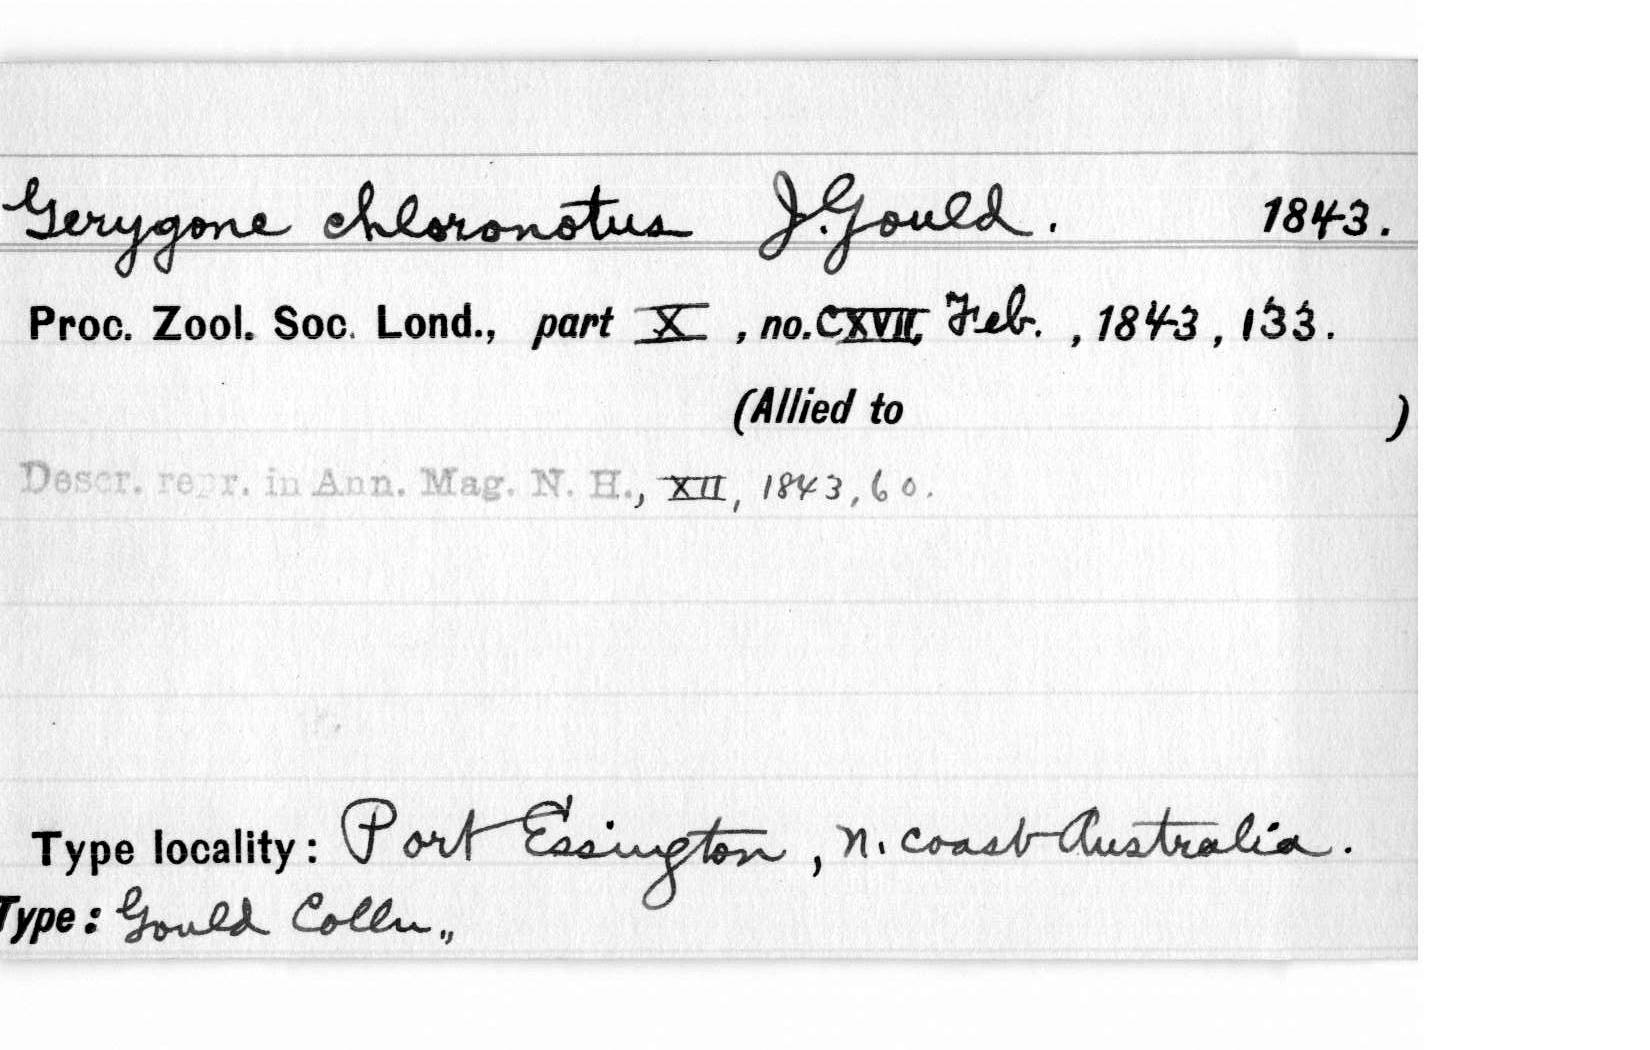 Gerygone chloronotus J. Gould. 1843.
Proc. Zool. Soc. Lond., part X, no. CXVII, Feb., 1843, 133.
(Allied to )
Descr. repr. in Ann. Mag. N. H., XII, 1843, 60.
Type locality: Port Essington, n. coast Australia.
Type: Gould Colln.,